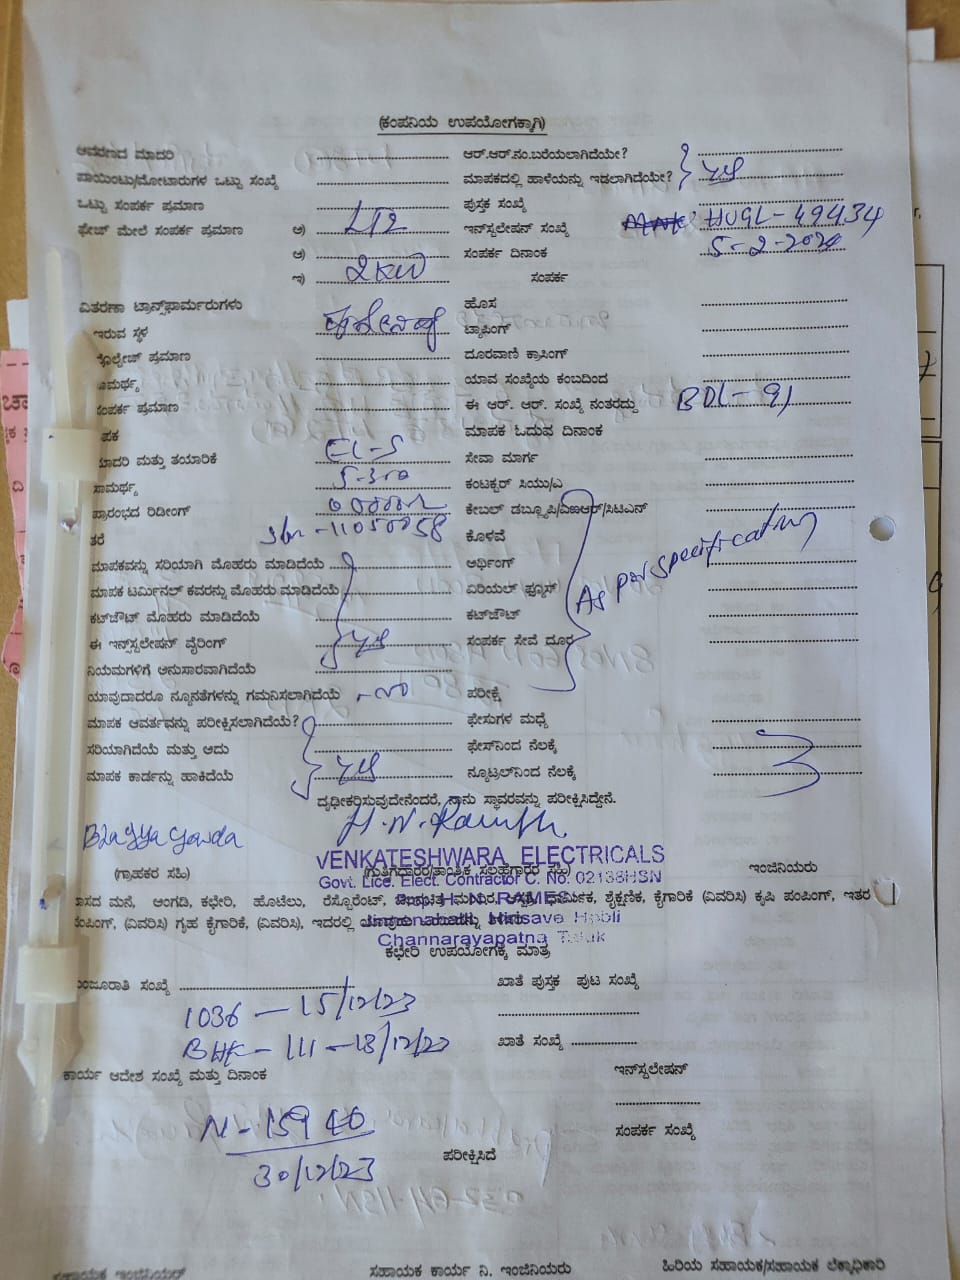 (ಕಂಪನಿಯ ಉಪಯೋಗಕ್ಕಾಗಿ)
ಆವರಣದ ಮಾದರಿ ಆರ್.ಆರ್.ನಂ.ಬರೆಯಲಾಗಿದೆಯೇ?
ಪಾಯಿಂಟು/ಮೋಟಾರುಗಳ ಒಟ್ಟು ಸಂಖ್ಯೆ ಮಾಪಕದಲ್ಲಿ ಹಾಳೆಯನ್ನು ಇಡಲಾಗಿದೆಯೇ?
ಒಟ್ಟು ಸಂಪರ್ಕ ಪ್ರಮಾಣ ಪುಸ್ತಕ ಸಂಖ್ಯೆ
ಫೇಜ್ ಮೇಲೆ ಸಂಪರ್ಕ ಪ್ರಮಾಣ ಅ) LT2 ಇನ್‌ಸ್ಟಲೇಷನ್ ಸಂಖ್ಯೆ HUGL-49434
ಆ) ಸಂಪರ್ಕ ದಿನಾಂಕ 5-2-2024
ಇ) 2KW ಸಂಪರ್ಕ
ವಿತರಣಾ ಟ್ರಾನ್ಸ್‌ಫಾರ್ಮರುಗಳು ಹೊಸ
ಇರುವ ಸ್ಥಳ ಟ್ಯಾಪಿಂಗ್
ವೋಲ್ಟೇಜ್ ಪ್ರಮಾಣ ದೂರವಾಣಿ ಕ್ರಾಸಿಂಗ್
ಸಾಮರ್ಥ್ಯ ಯಾವ ಸಂಖ್ಯೆಯ ಕಂಬದಿಂದ
ಸಂಪರ್ಕ ಪ್ರಮಾಣ ಈ ಆರ್. ಆರ್. ಸಂಖ್ಯೆ ನಂತರದ್ದು BDL-91
ಮಾಪಕ ಮಾಪಕ ಓದುವ ದಿನಾಂಕ
ಮಾದರಿ ಮತ್ತು ತಯಾರಿಕೆ EL-5 ಸೇವಾ ಮಾರ್ಗ
ಸಾಮರ್ಥ್ಯ 5-30 ಕಂಟಕ್ಟರ್ ಸಿಯು/ಎ
ಪ್ರಾರಂಭದ ರಿಡೀಂಗ್ ಕೇಬಲ್ ಡಬ್ಲ್ಯೂಪಿ/ಏಐಆರ್/ಸಿಟಿಎನ್
ತರೆ 11050058 ಕೊಳವೆ
ಮಾಪಕವನ್ನು ಸರಿಯಾಗಿ ಮೊಹರು ಮಾಡಿದೆಯೆ ಅರ್ಥಿಂಗ್
ಮಾಪಕ ಟರ್ಮಿನಲ್ ಕವರನ್ನು ಮೊಹರು ಮಾಡಿದೆಯೆ ಏರಿಯಲ್ ಫ್ಯೂಸ್ As per specification
ಕಟ್‌ಔಟ್ ಮೊಹರು ಮಾಡಿದೆಯೆ ಕಟ್‌ಔಟ್
ಈ ಇನ್ಸ್‌ಸ್ಟಲೇಷನ್ ವೈರಿಂಗ್ ಸಂಪರ್ಕ ಸೇವೆ ದೂರ
ನಿಯಮಗಳಿಗೆ ಅನುಸಾರವಾಗಿದೆಯೆ
ಯಾವುದಾದರೂ ನ್ಯೂನತೆಗಳನ್ನು ಗಮನಿಸಲಾಗಿದೆಯೆ - no ಪರೀಕ್ಷೆ
ಮಾಪಕ ಆವರ್ತವನ್ನು ಪರೀಕ್ಷಿಸಲಾಗಿದೆಯೆ? ಫೇಸುಗಳ ಮಧ್ಯೆ
ಸರಿಯಾಗಿದೆಯೆ ಮತ್ತು ಅದು ಫೇಸ್‌ನಿಂದ ನೆಲಕ್ಕೆ
ಮಾಪಕ ಕಾರ್ಡನ್ನು ಹಾಕಿದೆಯೆ ನ್ಯೂಟ್ರಲ್‌ನಿಂದ ನೆಲಕ್ಕೆ
ದೃಢೀಕರಿಸುವುದೇನೆಂದರೆ, ನಾನು ಸ್ಥಾವರವನ್ನು ಪರೀಕ್ಷಿಸಿದ್ದೇನೆ.
Bhagya gowda H.N. Ramesh
VENKATESHWARA ELECTRICALS
(ಗ್ರಾಹಕರ ಸಹಿ) (ಗುತ್ತಿಗೆದಾರರ/ತಾಂತ್ರಿಕ ಸಲಹೆಗಾರರ ಸಹಿ) ಇಂಜಿನಿಯರು
Govt. Lice. Elect. Contractor C. No. 02138HSN
ವಾಸದ ಮನೆ, ಅಂಗಡಿ, ಕಛೇರಿ, ಹೊಟೆಲು, ರೆಸ್ಟೊರೆಂಟ್, ಧಾರ್ಮಿಕ, ಶೈಕ್ಷಣಿಕ, ಕೈಗಾರಿಕೆ (ವಿವರಿಸಿ) ಕೃಷಿ ಪಂಪಿಂಗ್, ಇತರ
H. N. RAMESH
ಪಂಪಿಂಗ್, (ವಿವರಿಸಿ) ಗೃಹ ಕೈಗಾರಿಕೆ, (ವಿವರಿಸಿ), ಇದರಲ್ಲಿ
Hirisave Hobli
Channarayapatna Taluk
ಕಛೇರಿ ಉಪಯೋಗಕ್ಕೆ ಮಾತ್ರ
ಮಂಜೂರಾತಿ ಸಂಖ್ಯೆ ಖಾತೆ ಪುಸ್ತಕ ಪುಟ ಸಂಖ್ಯೆ
1036 - 15/12/23
111 - 18/12/23 ಖಾತೆ ಸಂಖ್ಯೆ
ಕಾರ್ಯ ಆದೇಶ ಸಂಖ್ಯೆ ಮತ್ತು ದಿನಾಂಕ ಇನ್‌ಸ್ಟಲೇಷನ್
N-15940 ಸಂಪರ್ಕ ಸಂಖ್ಯೆ
30/12/23 ಪರೀಕ್ಷಿಸಿದೆ
ಸಹಾಯಕ ಇಂಜಿನಿಯರ್ ಸಹಾಯಕ ಕಾರ್ಯ ನಿ. ಇಂಜಿನಿಯರು ಹಿರಿಯ ಸಹಾಯಕ/ಸಹಾಯಕ ಲೆಕ್ಕಾಧಿಕಾರಿ